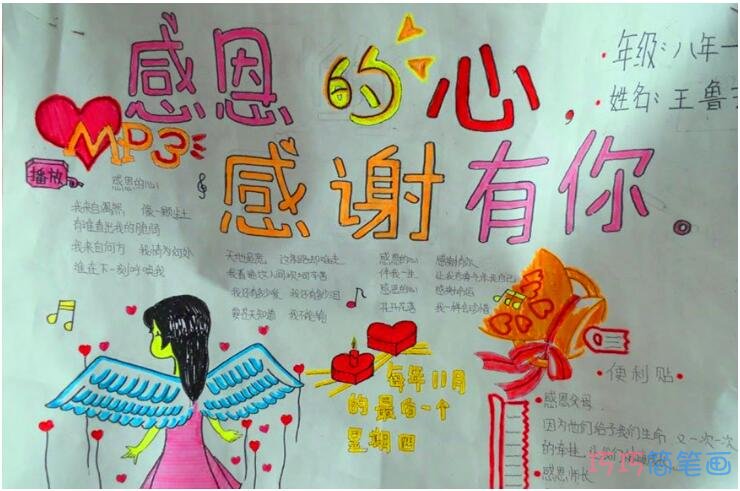 感恩的心，
感谢有你。
年级：八年一
姓名：王鲁
MP3
播放
感恩的心
我来自偶然 像一颗尘土
有谁看出我的脆弱
我来自何方 我情归何处
谁在下一刻呼唤我
天地虽宽 这条路却难走
我看遍这人间坎坷辛苦
我还有多少爱 我还有多少泪
要苍天知道 我不认输
感恩的心 感谢有你
伴我一生 让我有勇气作我自己
感恩的心 感谢命运
花开花落 我一样会珍惜
每年11月
的最后一个
星期四
便利贴
感恩父母
因为他们给予我们生命 又一次一次
的
感恩师长
巧巧简笔画